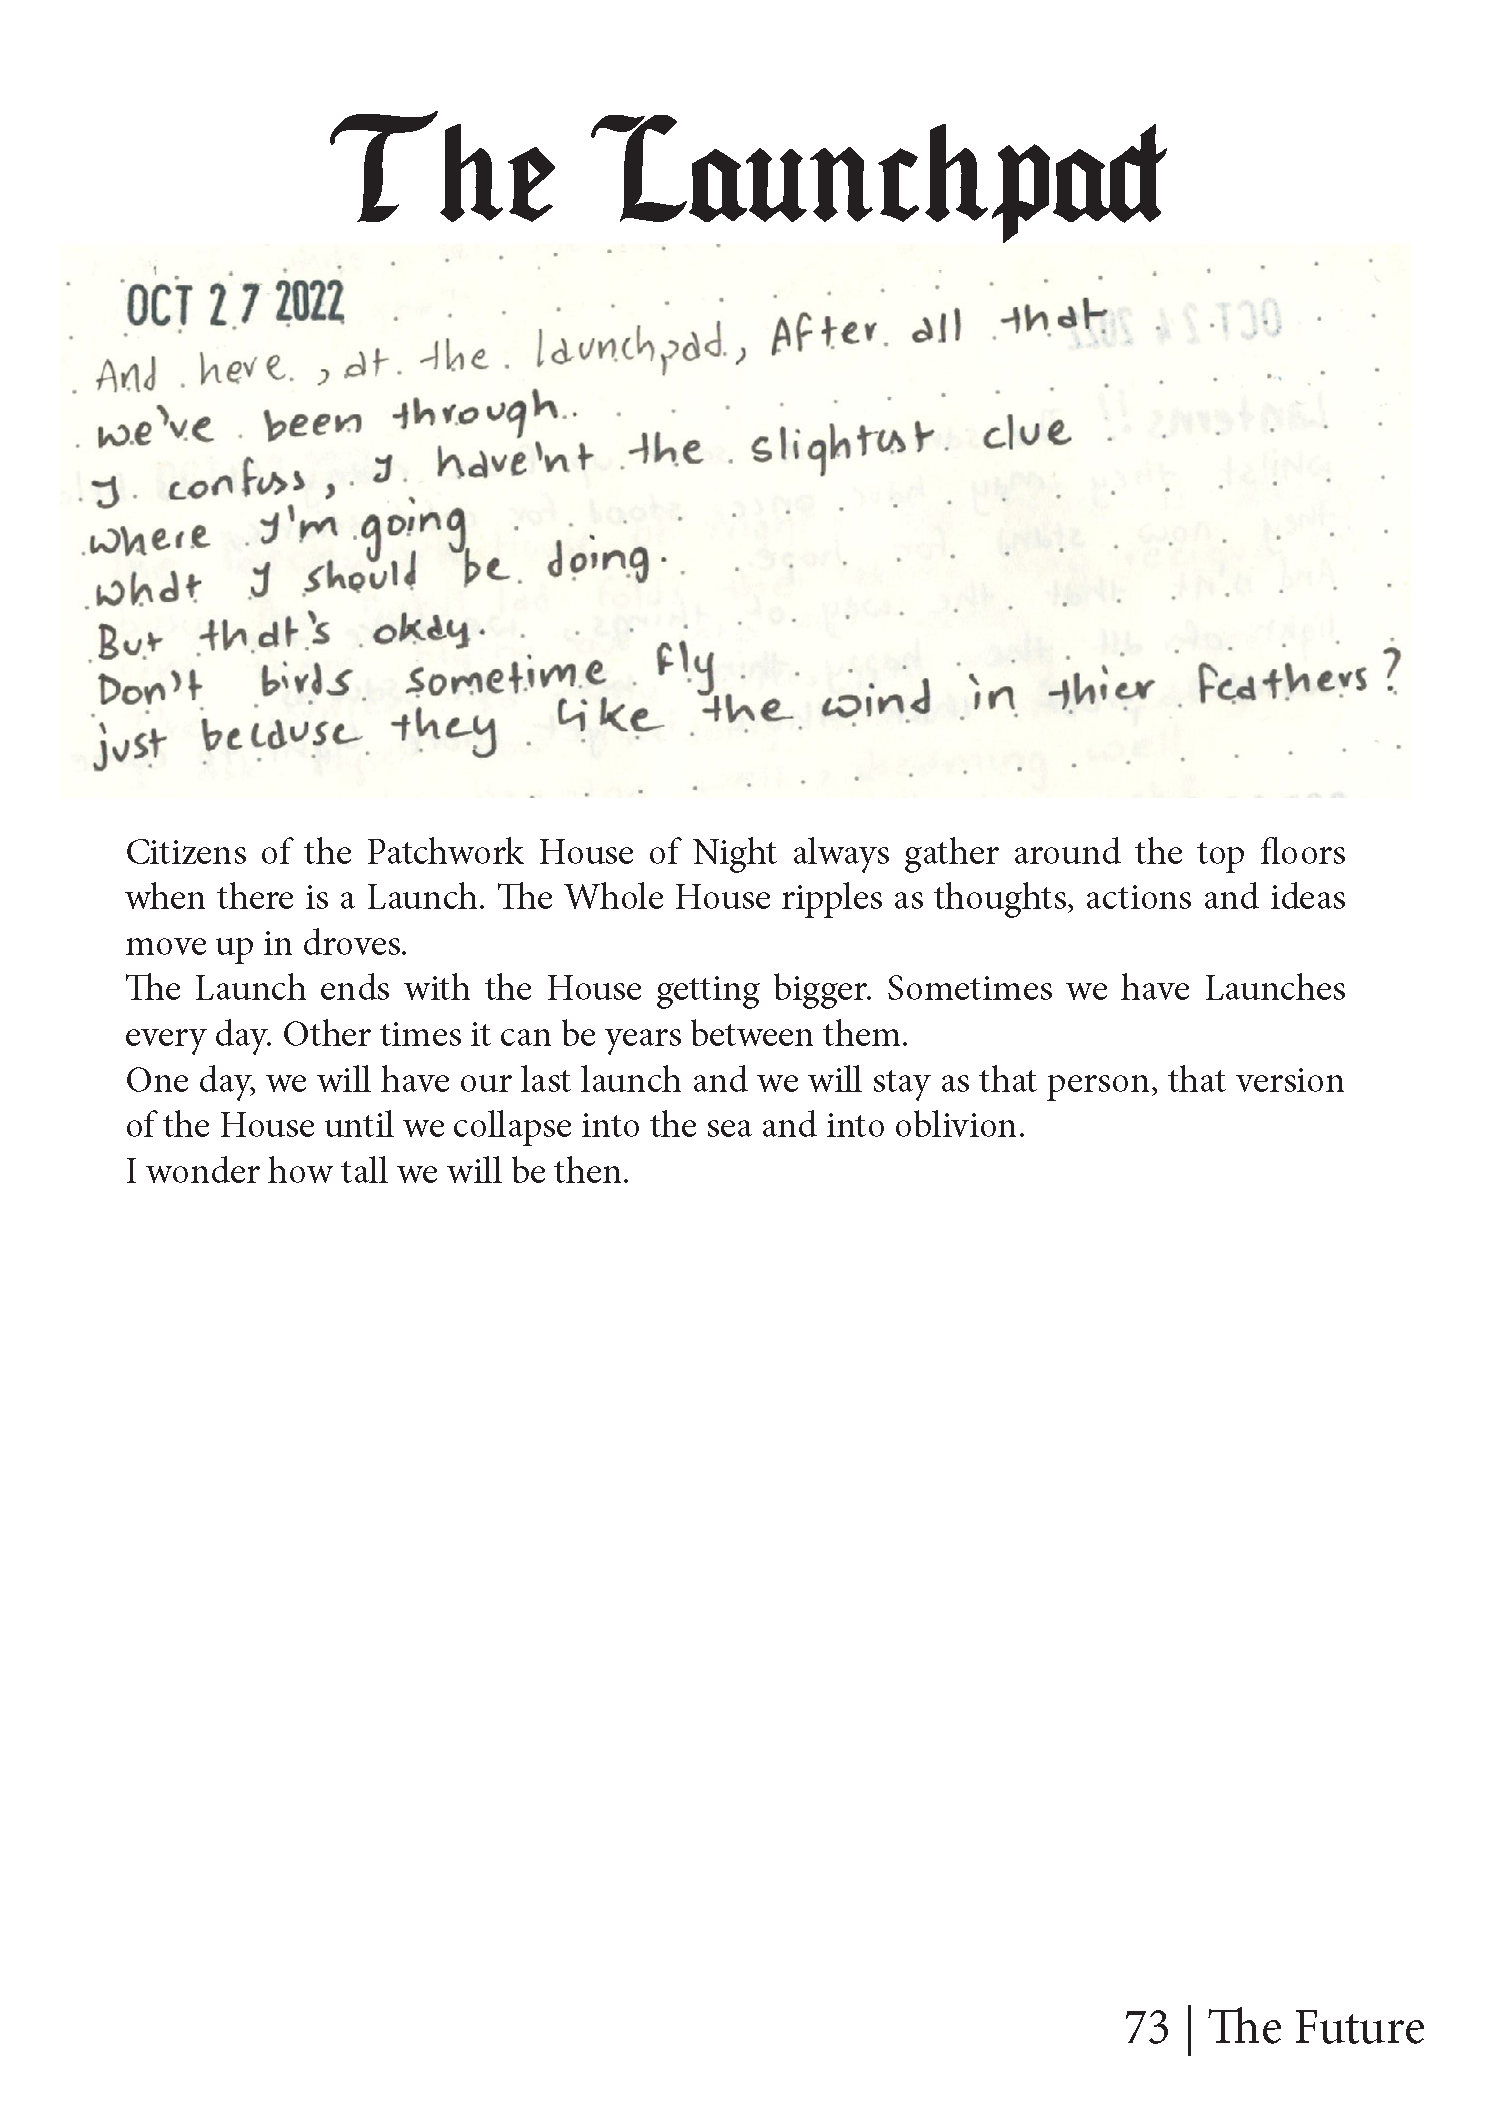 The Launchpad
OCT 27 2022
And here, at the launchpad, After all that
we've been through.
I confess, I have'nt the slightest clue
where I'm going
what I should be doing.
But that's okay.
Don't birds sometime fly
just because they like the wind in thier feathers?
Citizens of the Patchwork House of Night always gather around the top floors
when there is a Launch. The Whole House ripples as thoughts, actions and ideas
move up in droves.
The Launch ends with the House getting bigger. Sometimes we have Launches
every day. Other times it can be years between them.
One day, we will have our last launch and we will stay as that person, that version
of the House until we collapse into the sea and into oblivion.
I wonder how tall we will be then.
73 | The Future